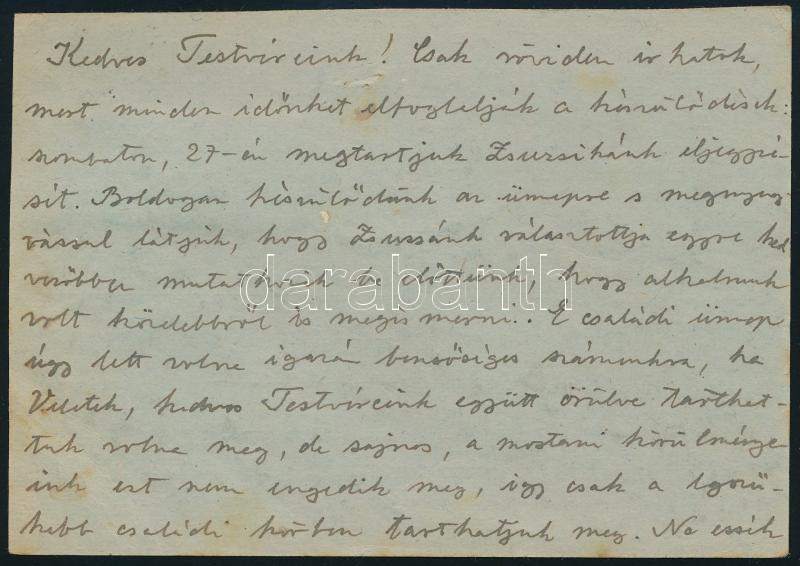 Kedves Testvéreink! Csak röviden irhatok,
mert minden időnket elfoglalják a készülődések:
szombaton, 27-én megtartjuk Zsuzsikánk eljegyzé-
sét. Boldogan készülődünk az ünnepre s megnyug-
vással látjuk, hogy Zsuzsánk választottja egyre ked-
vezőbben mutatkozik be előttünk, hogy alkalmunk
volt közelebbről is megismerni. E családi ünnep
úgy lett volna igazán bensőséges számunkra, ha
Veletek, kedves Testvéreink együtt örülve tarthat-
tuk volna meg, de sajnos, a mostani körülménye-
ink ezt nem engedik meg, igy csak a legszű-
kebb családi körben tarthatjuk meg. Ne essék
darabanth